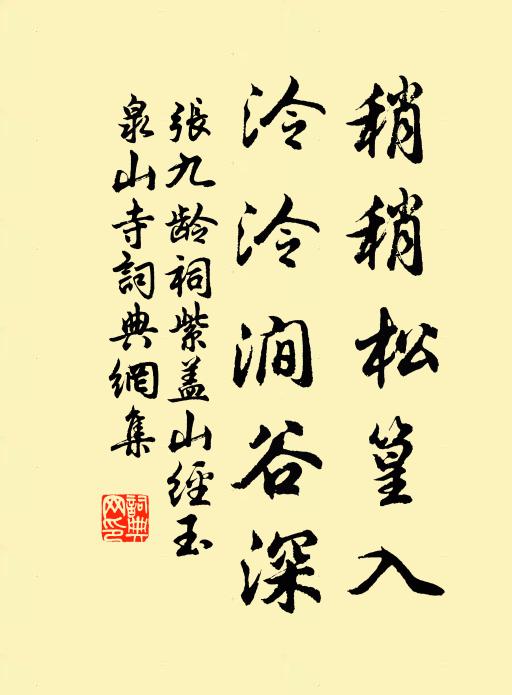 稍稍松篁入
泠泠澗谷深
張九龄祠紫盖山經玉
泉山寺詞典網集
詞典
网印